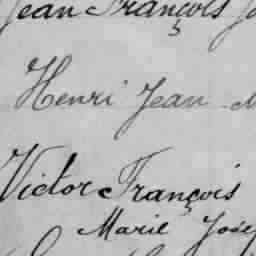 Jean François
Henri Jean
Victor François
Marie